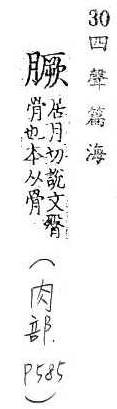 30四聲篇海
居月切說文臀
骨也本从骨
(肉部.P585)